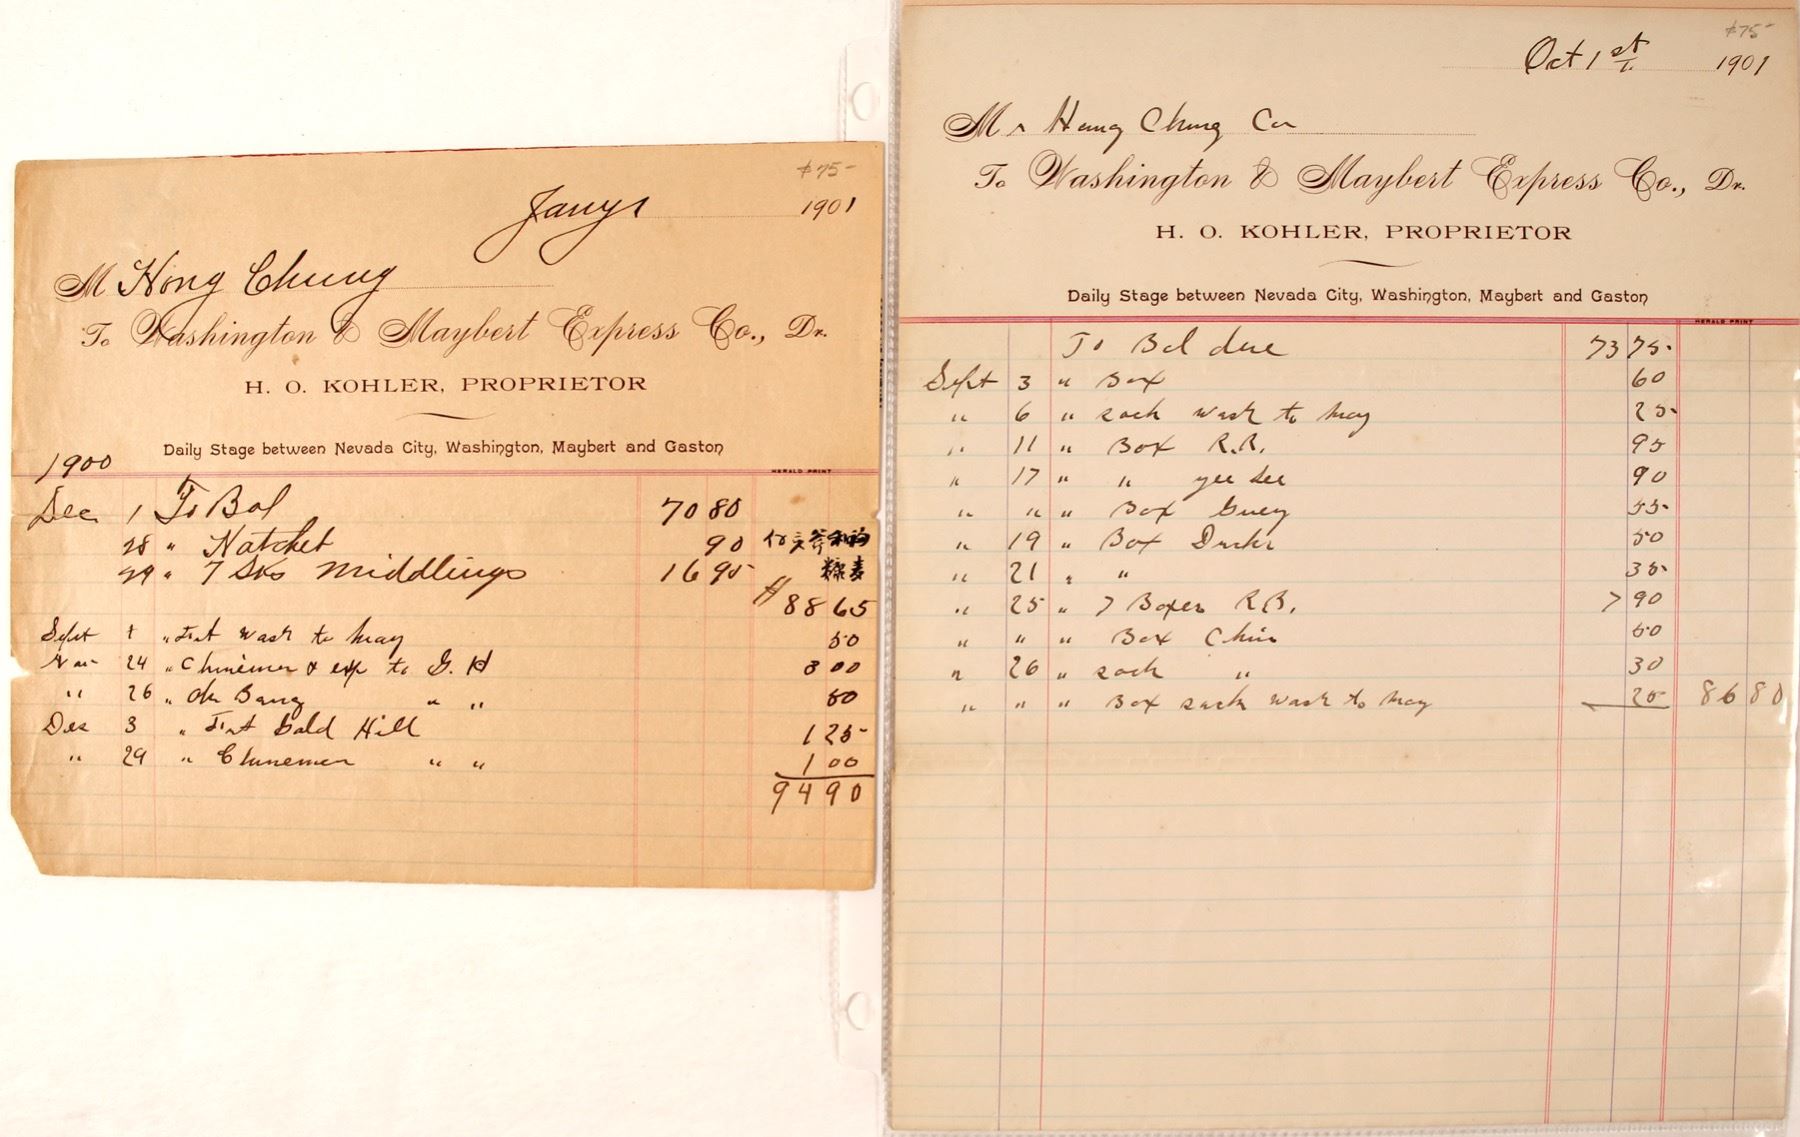 $75-
Jany 1 1901
M Hong Chung
To Washington & Maybert Express Co., Dr.
H. O. KOHLER, PROPRIETOR
Daily Stage between Nevada City, Washington, Maybert and Gaston
HERALD PRINT
1900
Dec 1 To Bal 70 80
28 " Hatchet 90
29 " 7 Sks Middlings 16 95
$88 65
Sept 1 " Frt Wash to May 50
Nov 24 " Chinemen & exp to G. H 3 00
" 26 " Bang " " 50
Dec 3 " Frt Bald Hill 1 25
" 29 " Chinemen " " 1 00
94 90
$75-
Oct 1st 1901
Mr Hong Chung Co
To Washington & Maybert Express Co., Dr.
H. O. KOHLER, PROPRIETOR
Daily Stage between Nevada City, Washington, Maybert and Gaston
HERALD PRINT
To Bal due 73 75
Sept 3 " Box 60
" 6 " sack Wash to May 25
" 11 " Box R.R. 95
" 17 " " yee See 90
" " " Box Guey 55
" 19 " Box Ducks 50
" 21 " " 35
" 25 " 7 Boxes R.R. 7 90
" " " Box Chin 50
" 26 " sack " 30
" " " Box sack Wash to May 25 86 80